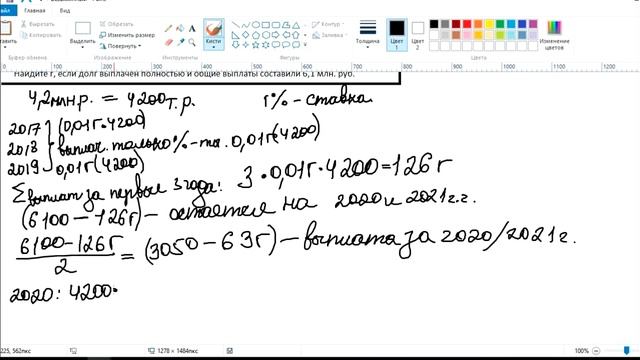 Файл
Главная
Вид
Вставить
Выделить
Обрезать
Изменить размер
Повернуть
Кисти
Контур
Заливка
Толщина
Цвет 1
Цвет 2
Изменение цветов
Буфер обмена
Изображение
Инструменты
Фигуры
Цвета
Найдите r, если долг выплачен полностью и общие выплаты составили 6,1 млн. руб.
4,2 млн.р. = 4200 т.р. r% - ставка
2017 (0,01r·4200)
2018 выплач. только % - ты. 0,01r(4200)
2019 0,01r(4200)
Σ выплат за первые 3 года: 3·0,01r·4200=126r
(6100-126r) - остается на 2020 и 2021г.г.
6100-126r / 2 = (3050-63r) - выплата за 2020/2021г.
2020: 4200·
225, 562пкс
1278 × 1484пкс
100%